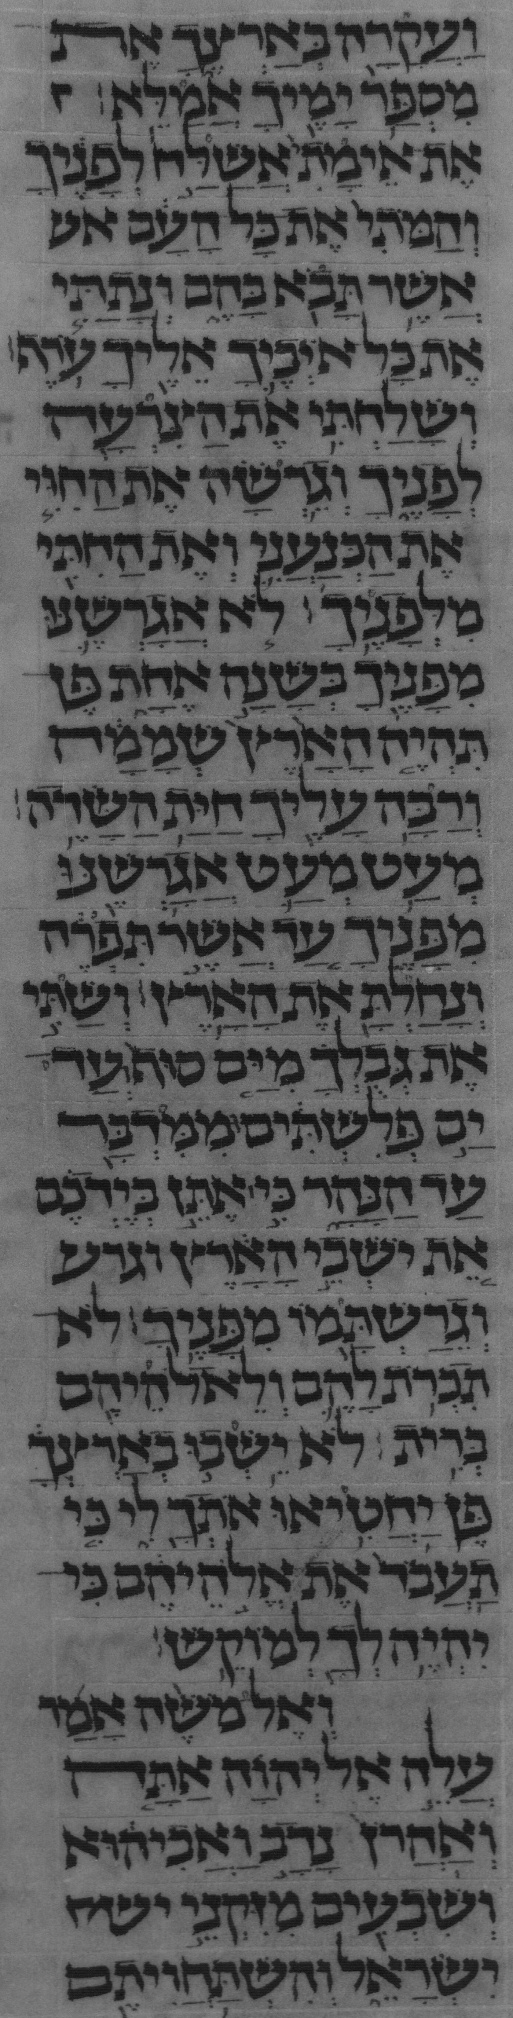 וַעֲקָרָה בְּאַרְצֶךָ אֶת
מִסְפַּר יָמֶיךָ אֲמַלֵּא׃
אֶת אֵימָתִי אֲשַׁלַּח לְפָנֶיךָ
וְהַמֹּתִי אֶת כָּל הָעָם אש
אֲשֶׁר תָּבֹא בָּהֶם וְנָתַתִּי
אֶת כָּל אֹיְבֶיךָ אֵלֶיךָ עֹרֶף׃
וְשָׁלַחְתִּי אֶת הַצִּרְעָה
לְפָנֶיךָ וְגֵרְשָׁה אֶת הַחִוִּי
אֶת הַכְּנַעֲנִי וְאֶת הַחִתִּי
מִלְּפָנֶיךָ׃ לֹא אֲגָרְשֶׁנּוּ
מִפָּנֶיךָ בְּשָׁנָה אֶחָת פֶּן
תִּהְיֶה הָאָרֶץ שְׁמָמָה
וְרַבָּה עָלֶיךָ חַיַּת הַשָּׂדֶה׃
מְעַט מְעַט אֲגָרְשֶׁנּוּ
מִפָּנֶיךָ עַד אֲשֶׁר תִּפְרֶה
וְנָחַלְתָּ אֶת הָאָרֶץ׃ וְשַׁתִּי
אֶת גְּבֻלְךָ מִיַּם סוּף וְעַד
יָם פְּלִשְׁתִּים וּמִמִּדְבָּר
עַד הַנָּהָר כִּי אֶתֵּן בְּיֶדְכֶם
אֵת יֹשְׁבֵי הָאָרֶץ וגרש
וְגֵרַשְׁתָּמוֹ מִפָּנֶיךָ׃ לֹא
תִכְרֹת לָהֶם וְלֵאלֹהֵיהֶם
בְּרִית׃ לֹא יֵשְׁבוּ בְּאַרְצְךָ
פֶּן יַחֲטִיאוּ אֹתְךָ לִי כִּי
תַעֲבֹד אֶת אֱלֹהֵיהֶם כִּי
יִהְיֶה לְךָ לְמוֹקֵשׁ׃
וְאֶל מֹשֶׁה אָמַר
עֲלֵה אֶל יְהוָה אַתָּה
וְאַהֲרֹן נָדָב וַאֲבִיהוּא
וְשִׁבְעִים מִזִּקְנֵי
יִשְׂרָאֵל וְהִשְׁתַּחֲוִיתֶם